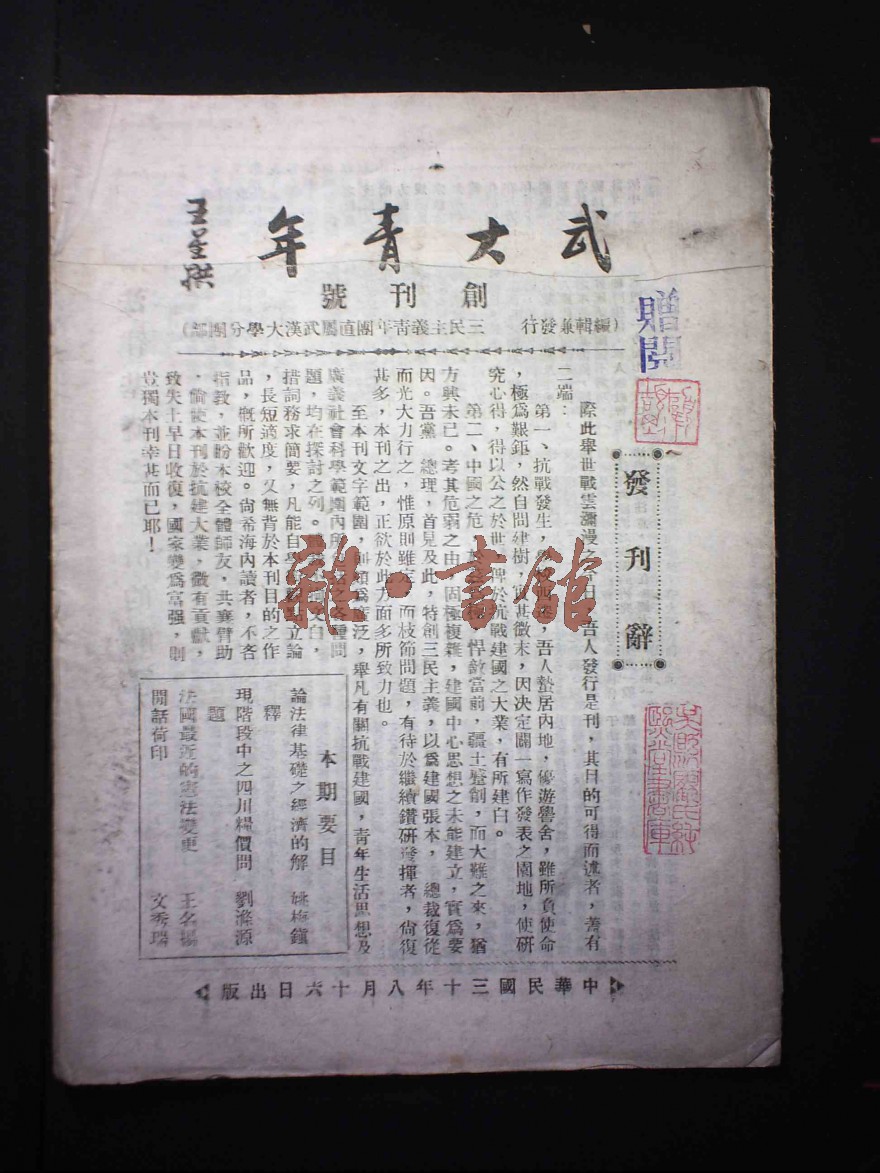 武大青年
王星拱
創刊號
(編輯兼發行 三民主義青年團直屬武漢大學分團部)
贈閱
發刊辭
際此舉世戰雲瀰漫之今日,吾人發行是刊,其目的可得而述者,蓋有
二端:
第一、抗戰發生,學校西遷,吾人蟄居內地,優遊黌舍,雖所負使命
,極爲艱鉅,然自問建樹,實甚微末,因決定闢一寫作發表之園地,使研
究心得,得以公之於世,俾於抗戰建國之大業,有所建白。
第二、中國之危,悍敵當前,疆土蹙削,而大難之來,猶
方興未已。考其危弱之由,固極複雜,建國中心思想之未能建立,實爲要
因。吾黨 總理,首見及此,特創三民主義,以爲建國張本, 總裁復從
而光大力行之,惟原則雖定,而枝節問題,有待於繼續鑽研發揮者,尙復
甚多,本刊之出,正欲於此方面多所致力也。
至本刊文字範圍,則頗爲廣泛,舉凡有關抗戰建國,青年生活思想及
廣義社會科學範圍內所之各種問
題,均在探討之列。文白,
措詞務求簡要,凡能自學點立論
,長短適度,又無背於本刊目的之作
品,槪所歡迎。尙希海內讀者,不吝
指敎,並盼本校全體師友,共襄臂助
,倘使本刊於抗建大業,微有貢獻,
致失土早日收復,國家變爲富强,則
豈獨本刊幸甚而已耶!
本期要目
論法律基礎之經濟的解釋 姚梅鎭
現階段中之四川糧價問題 劉滌源
法國最近的憲法變更 王名揚
閒話荷印 文秀瑞
中華民國三十年八月十六日出版
雜·書館